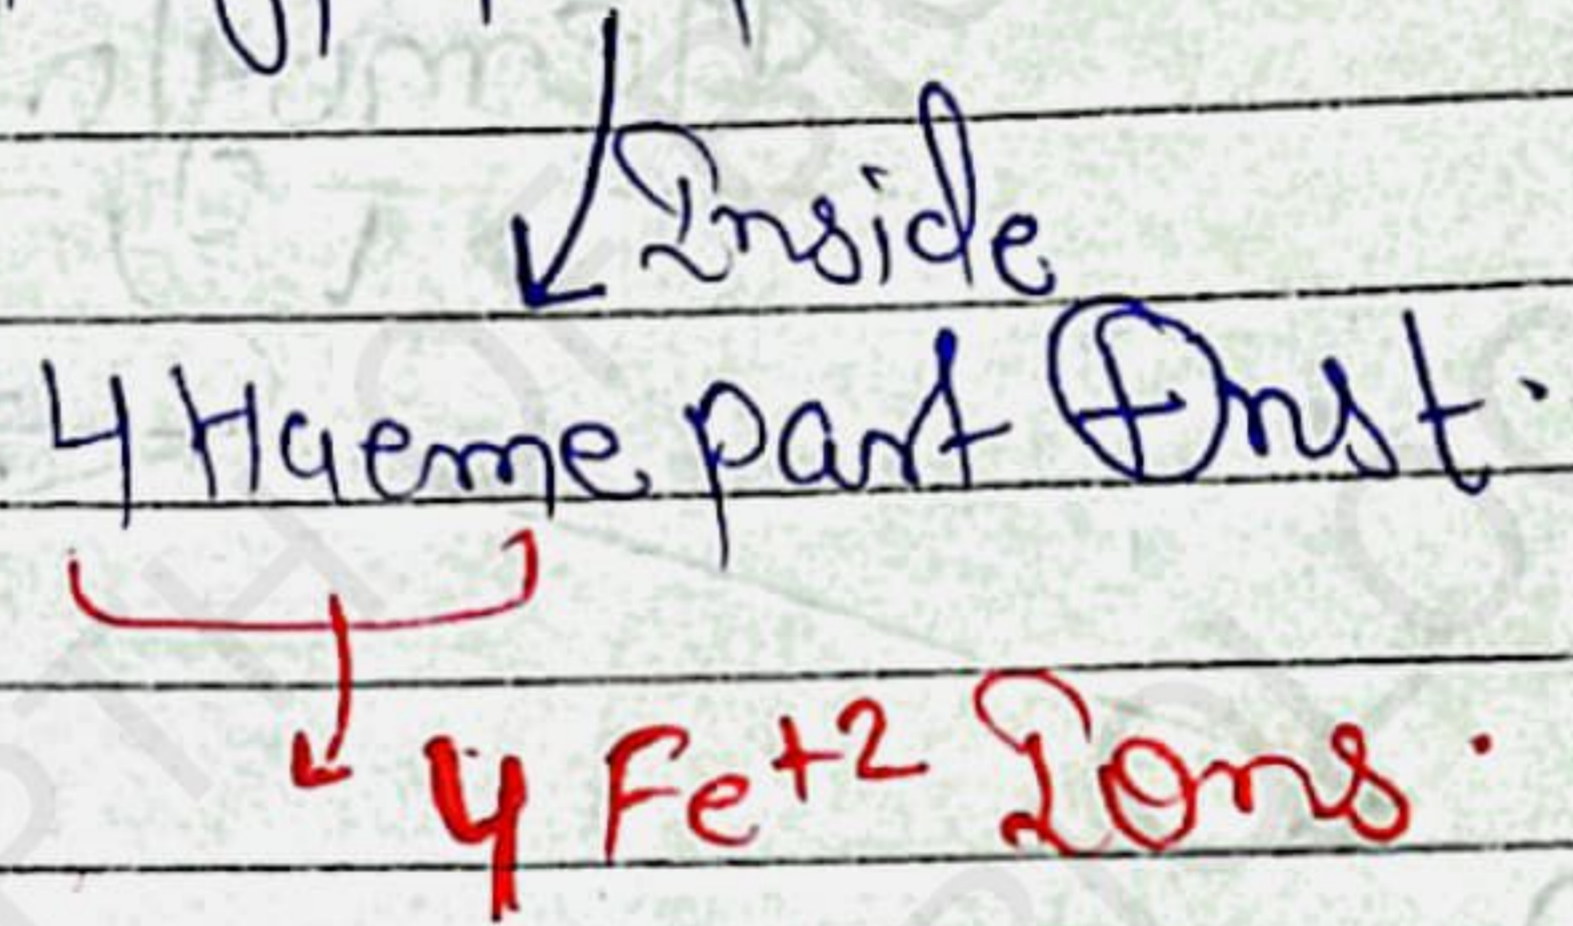 Inside
4 Haeme part
4 Fe+2 Ions.